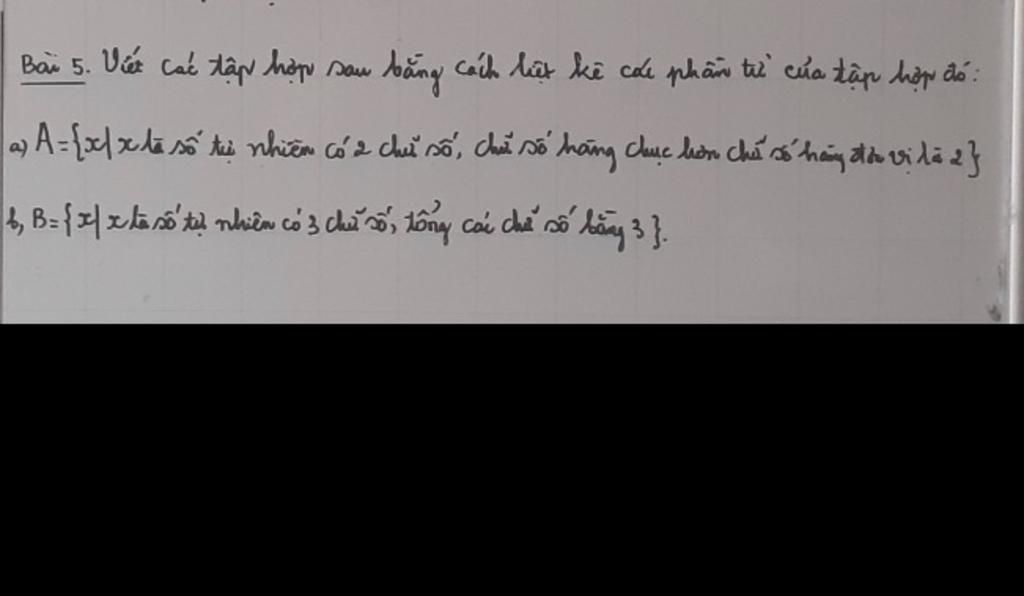 Bài 5. Viết các tập hợp sau bằng cách liệt kê các phần tử của tập hợp đó:
a) A = {x | x là số tự nhiên có 2 chữ số, chữ số hàng chục hơn chữ số hàng đơn vị là 2}
b, B = {x | x là số tự nhiên có 3 chữ số, tổng các chữ số bằng 3}.